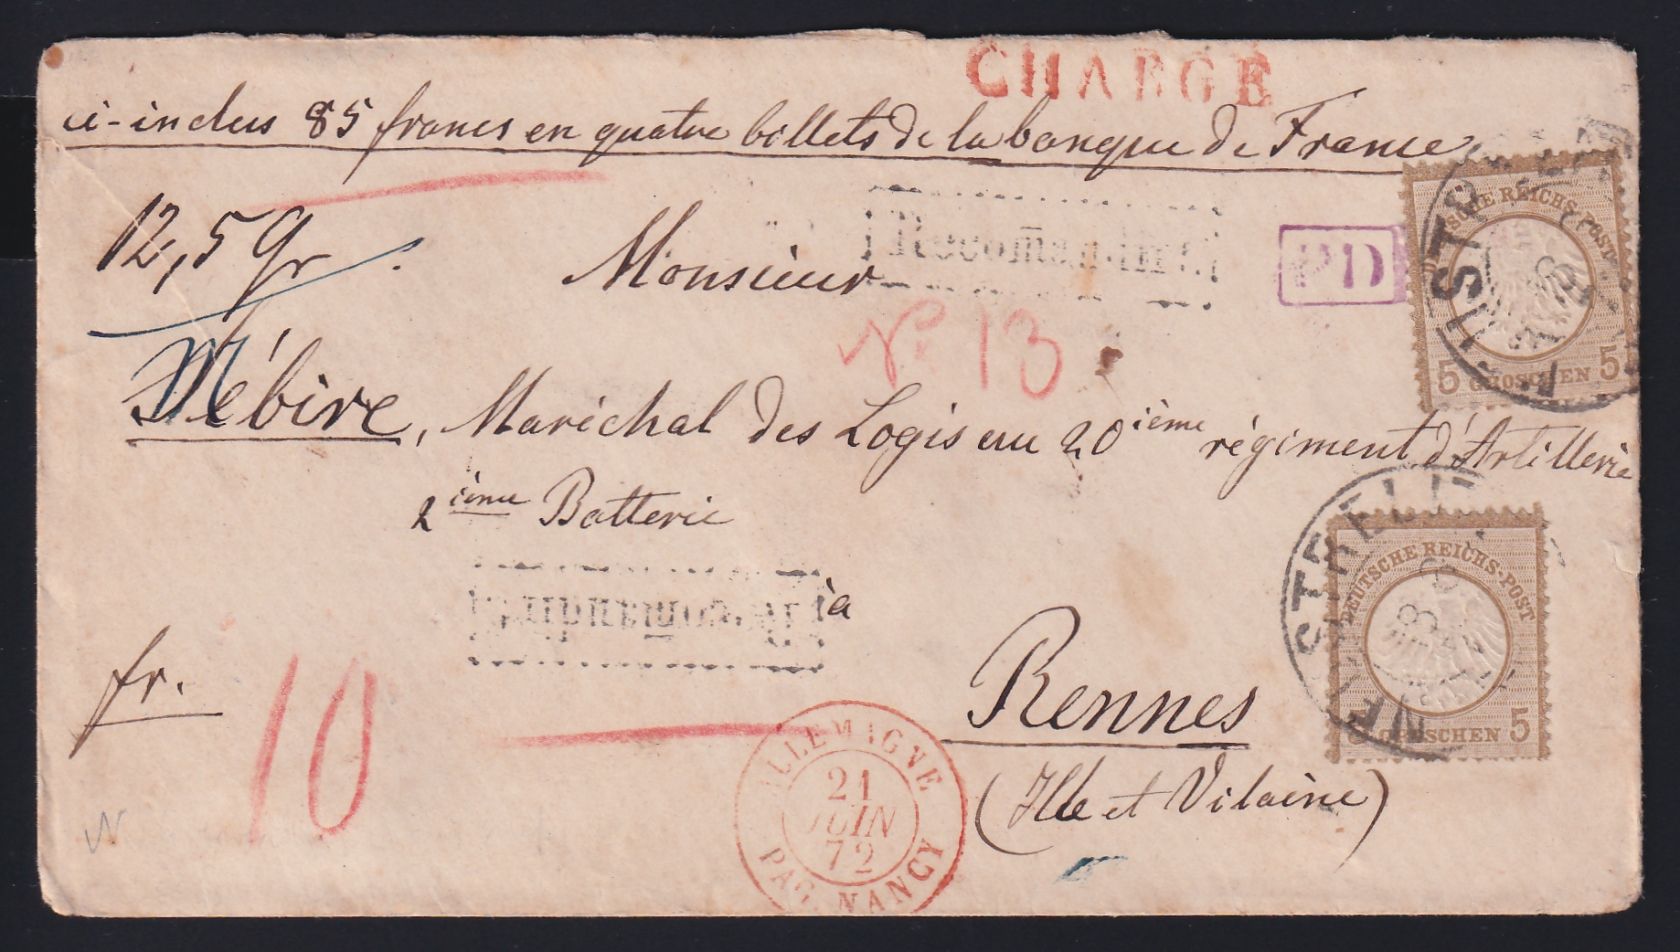 CHARGÉ
ci-inclus 85 francs en quatre billets de la banque de France
12,5 gr
Monsieur
Recomandirt.
PD
DEUTSCHE REICHS-POST
5 GROSCHEN 5
No 13
Mébire, Maréchal des Logis au 20ième régiment d'Artillerie
2ième Batterie
Recomandirt.
à
NEUSTRELITZ
DEUTSCHE REICHS-POST
5 GROSCHEN 5
fr.
10
Rennes
(Ille et Vilaine)
ALLEMAGNE
21
JUIN
72
PAR NANCY